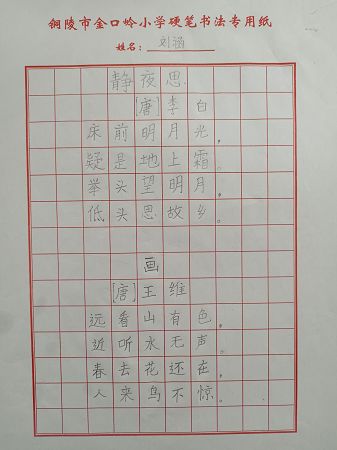 铜陵市金口岭小学硬笔书法专用纸
姓名：刘涵
静夜思
[唐]李白
床前明月光，
疑是地上霜。
举头望明月，
低头思故乡。
画
[唐]王维
远看山有色，
近听水无声。
春去花还在，
人来鸟不惊。